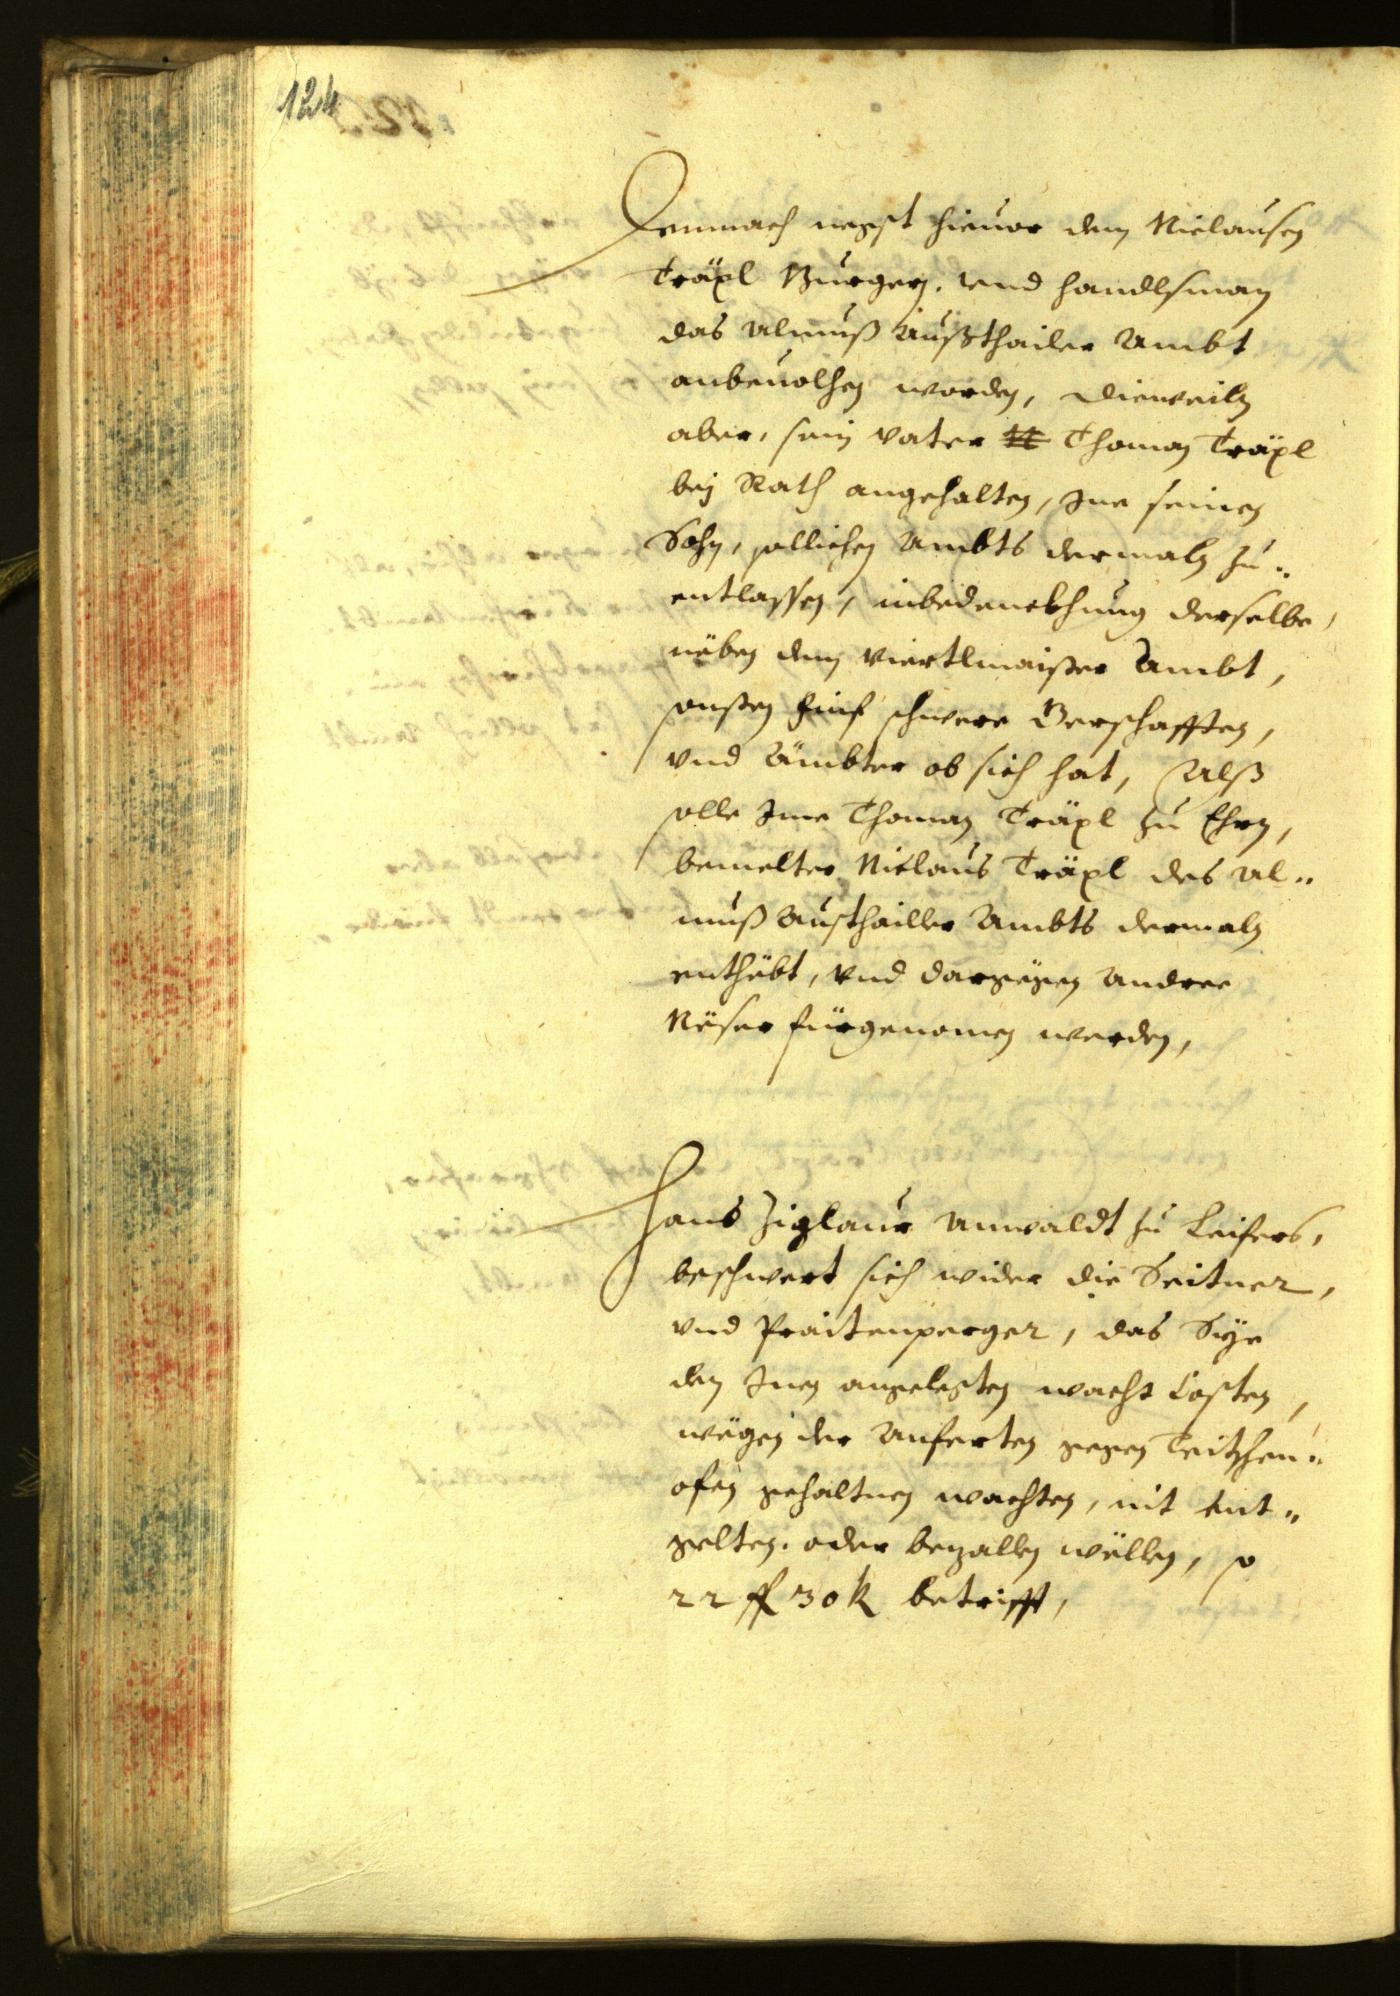 124
Demnach negst hieuor dem Niclausen
Träxl Burgern. vnd handlsman
das Almuß Außthailer Ambt
anbeuolhen worden, Dieweiln
aber, sein Vater Thoman Träxl
bey Rath angehalten, Ine seinen
Sohn, sollichen Ambts dermaln zu„
entlassen, inbedenckhung derselbe,
nëben dem Viertlmaister Ambt,
sonsten fünf schwere Gerhaften,
vnd Ämbter ob sich hat, Alß
solle Ime Thoman Träxl zu Ehrn,
bemelter Niclaus Träxl des Al„
muß Austhailler Ambts dermaln
enthëbt, vnd dargegen Andree
Nëser fürgenomen werden,
Hans Ziglaur Anwaldt zu Leifers,
beschwert sich wider die Seitner,
vnd Praitenperger, das Sÿe
den Inen angelegten wacht Costen,
wëgen der Auferten gegen Teitschen„
ofen gehaltnen wachten, nit ent„
gelten. oder bezallen wëllen, so
22 fl 30 k betrifft,